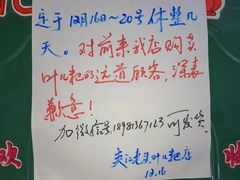 定于12月16日~20号休整几
天。对前来我店购买
叶儿粑的远道顾客,深表
歉意!
加微信号18981367123可发货.
夹江老头叶儿粑店
12.16
欢